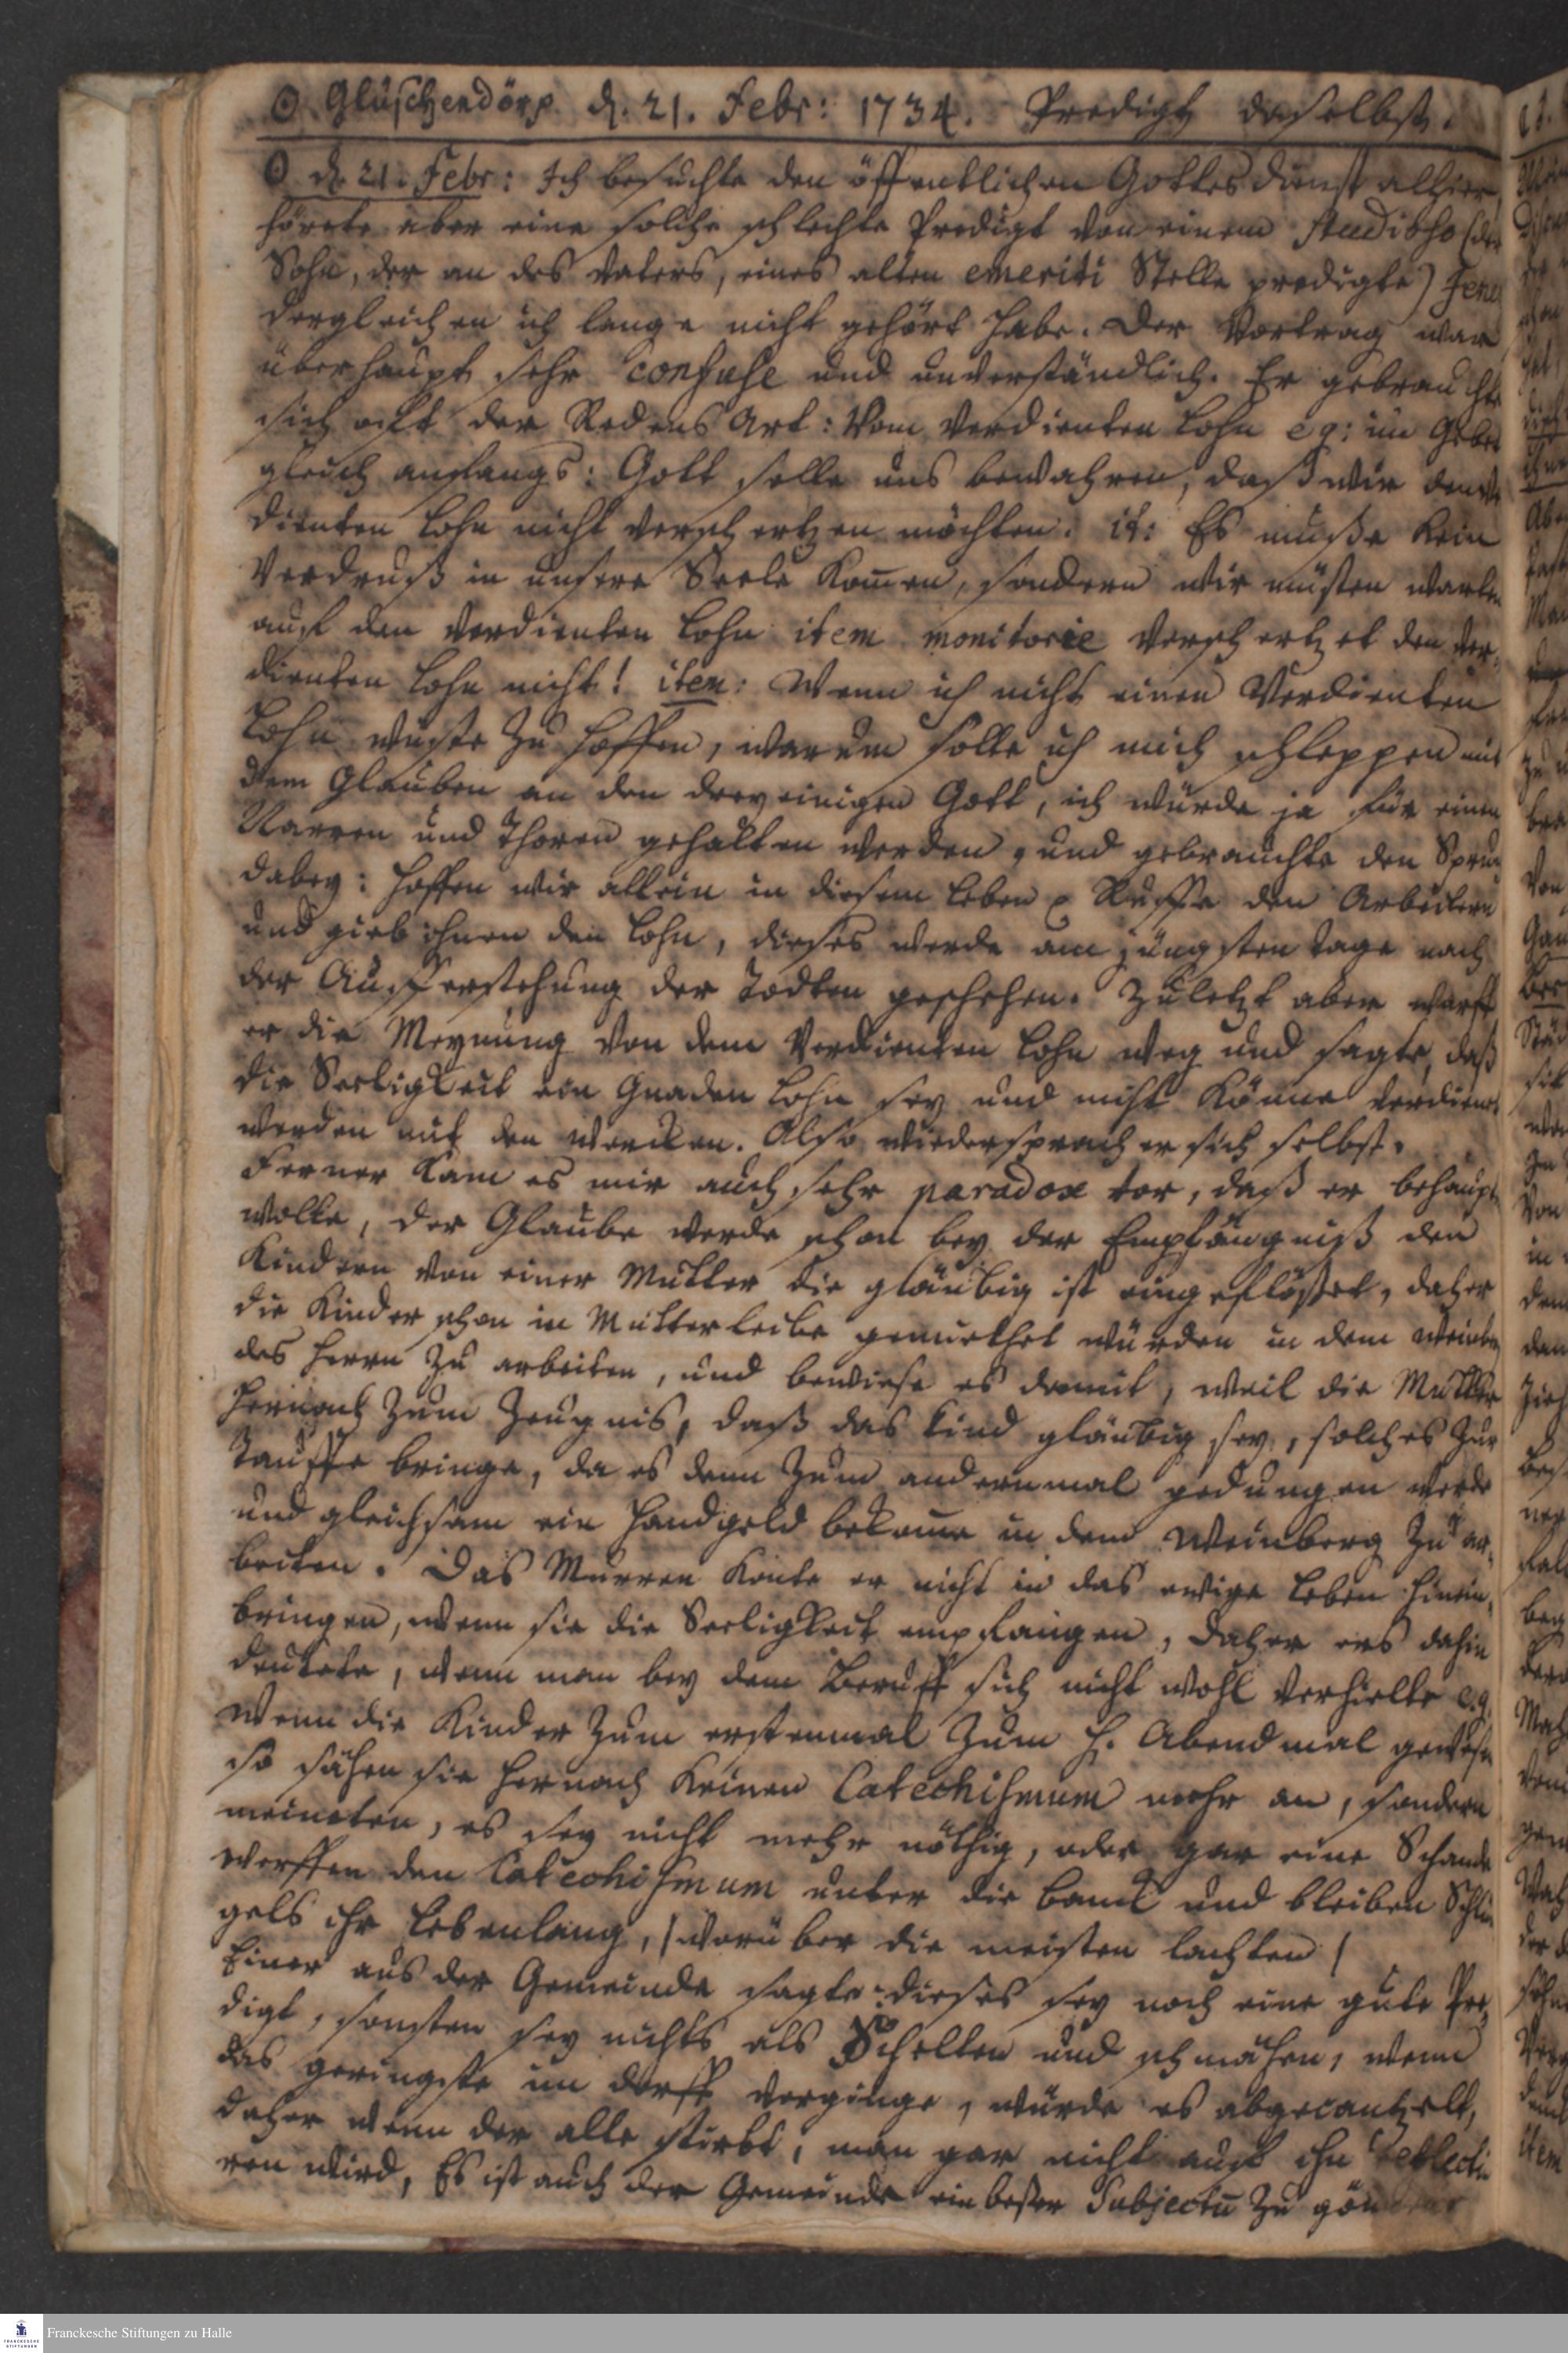 ☉ Glüschendörp d. 21. Febr: 1734. Predigt daselbst.
☉ d. 21. Febr: Ich besuchte den öffentlichen Gottesdienst alhier,
hörete aber eine solche schlechte Predigt von einem Studioso (der
Sohn, der an des Vaters, eines alten emeriti Stelle predigte)
dergleichen ich lange nicht gehört habe. Der Vortrag war
überhaupt sehr confuse und unverständlich. Er gebrauchte
sich offt der Redens Art: Vom Verdienten Lohn eg: im Gebet
gleich anfangs: Gott solle uns bewahren, daß wir den ver
dienten Lohn nicht verschertzen möchten. it: Es müße kein
Verdruß in unsere Seele kom̅en, sondern wir müsten warten
auf den verdienten Lohn item monitorie verschertzet den ver,
dienten Lohn nicht! item: Wenn ich nicht einen Verdienten
Lohn wüste zu hoffen, warum solte ich mich schleppen mit
dem Glauben an den dreyeinigen Gott, ich würde ja für einen
Narren und Thoren gehalten werden, und gebrauchte den Spruch
dabey: hoffen wir allein in diesem Leben Ruffe den Arbeitern
und gieb ihnen den Lohn, dieses werde am jüngsten Tage nach
der Aufferstehung der Todten geschehen. Zuletzt aber warff
er die Meynung von dem Verdienten Lohn weg und sagte, daß
die Seeligkeit ein Gnaden Lohn sey und nicht könne verdient
werden mit den wercken. Also wiedersprach er sich selbst.
Ferner kam es mir auch sehr paradox vor, daß er behaupt
wolte, der Glaube werde schon bey der Empfängniß den
Kindern von einer Mutter die gläubig ist eingeflößet, daher
die Kinder schon in Mutterleibe gemiethet würden in dem weinberg
des Herrn zu arbeiten, und bewiese es damit, weil die Mutter
hernach zum Zeugnis, daß das Kind gläubig sey, solches zur
Tauffe bringe, da es denn zum andernmal gedungen werde
und gleichsam ein Handgeld bekom̅e in dem Weinberg zu ar,
beiten. Das Murren konte er nicht in das ewige Leben hinein,
bringen, wenn sie die Seeligkeit empfangen, daher ers dahin
deutete, wenn man bey dem Beruff sich nicht wohl verhielte e.g.
Wenn die Kinder zum erstenmal zum H. Abendmal gewesen
so sähen sie hernach keinen Catechismum mehr an, sondern
meineten, es sey nicht mehr nöthig, oder gar eine Schande
werffen den Catechismum unter die banck und bleiben Schlin
gels ihr Lebenlang, (worüber die meisten lachten)
Einer aus der Gemeinde sagte: dieses sey noch eine gute Pre,
digt, sonsten sey nichts als Schelten und schmähen, wenn
das geringste im dorff vorginge, würde es abgecantzelt,
daher wenn der alte stirbt, man gar nicht auf ihn reflecti
ren wird, Es ist auch der Gemeinde ein beßer Subjectu̅ zu gönnen
Franckesche Stiftungen zu Halle